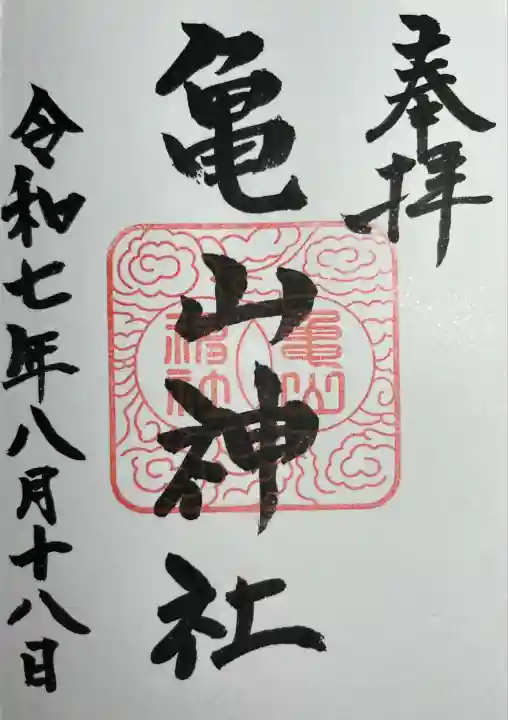 奉拝
亀山神社
令和七年八月十八日
亀山
神社